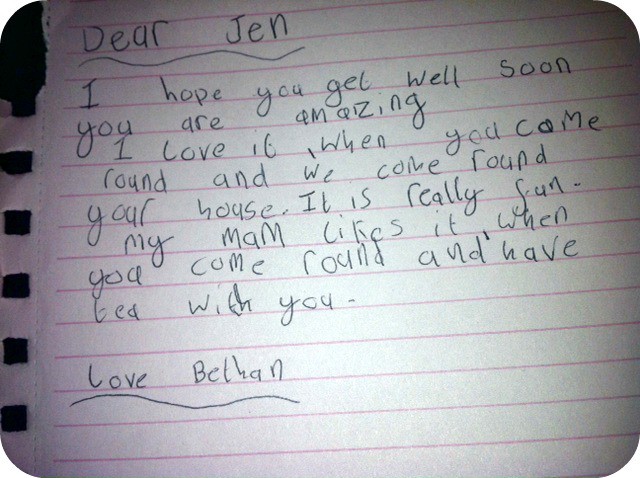 Dear Jen
I hope you get well soon
you are amazing
I love it, when you come
round and we come round
your house. It is really fun.
my mam likes it, when
you come round and have
tea with you.
Love Bethan